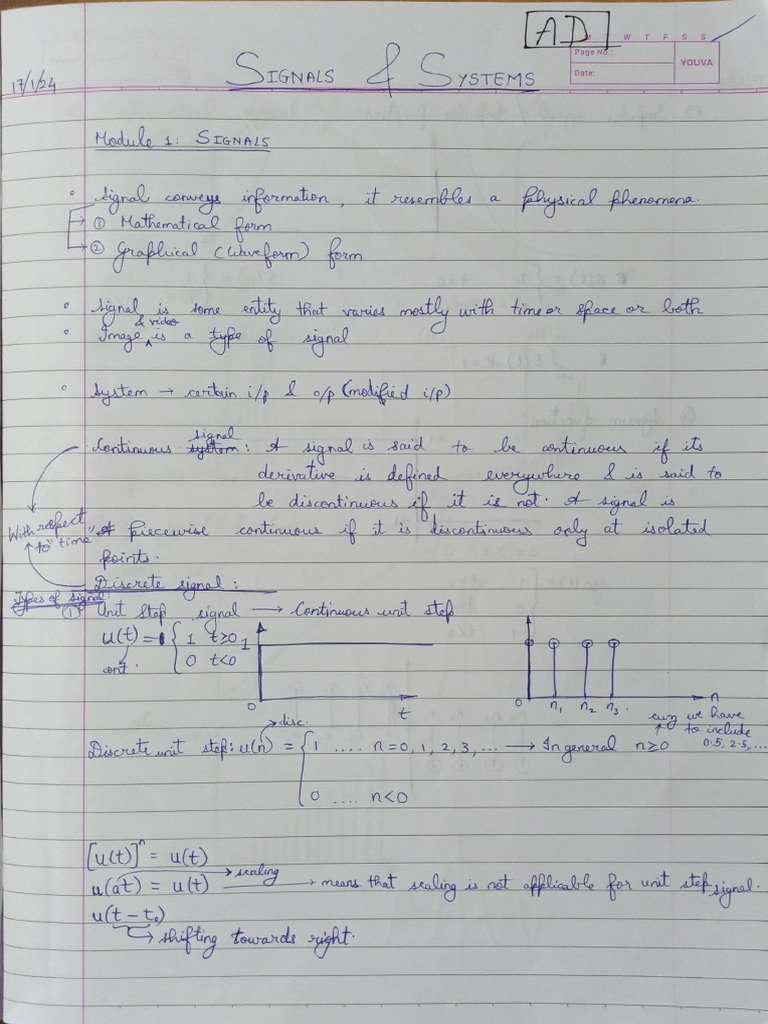 AD
M W T F S S
Page No.:
Date:
YOUVA
17/1/24
SIGNALS & SYSTEMS
Module 1: SIGNALS
◦ Signal conveys information, it resembles a physical phenomena.
① Mathematical form
② Graphical (Waveform) form
◦ Signal is some entity that varies mostly with time or space or both
& video
◦ Image ^ is a type of signal
◦ System → certain i/p & o/p (modified i/p)
signal
Continuous system: A signal is said to be continuous if its
derivative is defined everywhere & is said to
be discontinuous if it is not. A signal is
With respect to "time"
piecewise continuous if it is discontinuous only at isolated
points.
Discrete signal:
Types of signal:
(1) Unit Step signal → Continuous unit step
u(t) = { 1 t≥0
0 t<0
cont.
1
0
t
0 n₁ n₂ n₃
n
disc.
Discrete unit step: u(n) = { 1 .... n=0, 1, 2, 3, ... → In general n≥0
0 .... n<0
cuz we have
to include
0.5, 2.5, ...
[u(t)]ⁿ = u(t)
scaling
u(at) = u(t) → means that scaling is not applicable for unit step signal.
u(t - t₀)
→ shifting towards right.